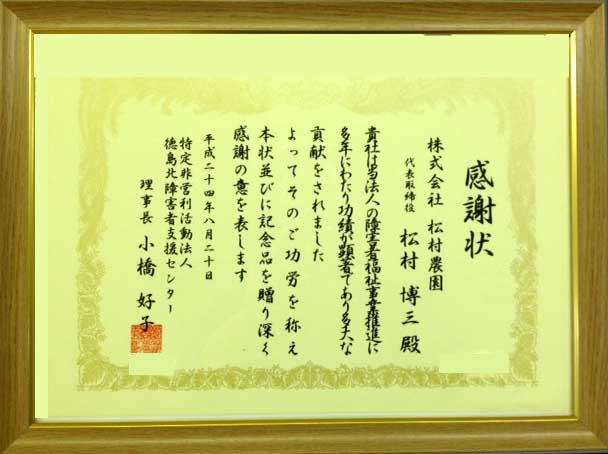 感謝状
株式会社 松村農園
代表取締役 松村 博三 殿
貴社は当法人の障害者福祉事業推進に
多年にわたり功績が顕著であり多大な
貢献をされました
よってそのご功労を称え
本状並びに記念品を贈り深く
感謝の意を表します
平成二十四年八月二十日
特定非営利活動法人
徳島北障害者支援センター
理事長 小橋 好子